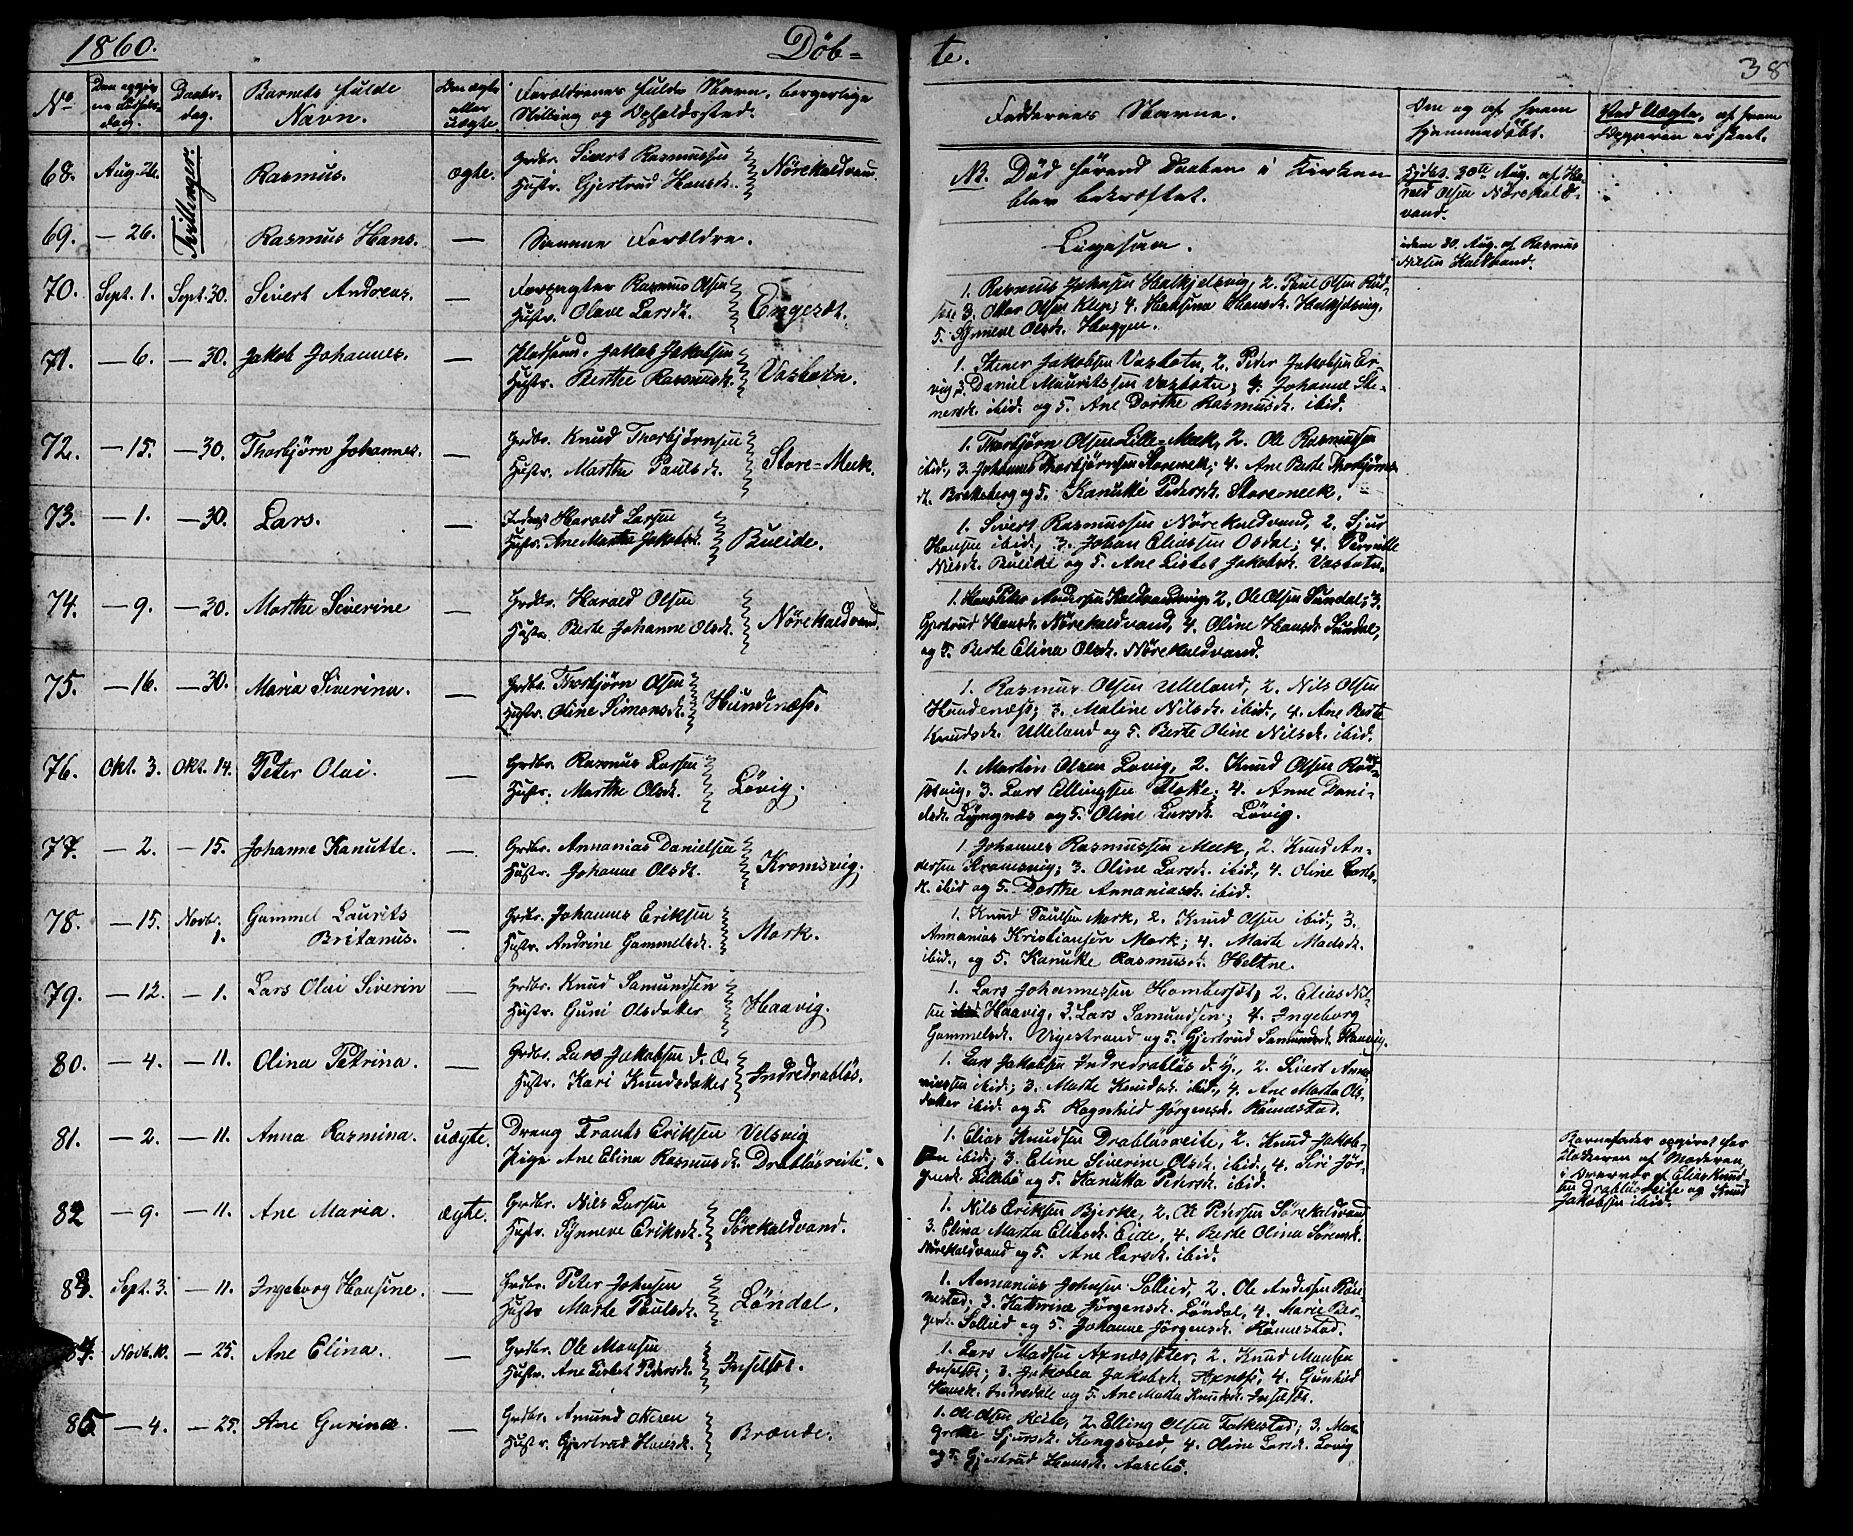 1860.
Døb=
te.
38
No
Daabs-
dag.
Barnets fulde
Navn.
ægte
eller
uægte.
Forældrenes fulde Navn, borgerlige
Stilling og Opholdssted.
Faddernes Navne.
Om og af hvem
hjemmedøbt.
Ved Uægte, af hvem
Opgaven er skeet.
68. Aug. 26. Tvillinger. Rasmus. ægte. Grdbr. Sivert Rasmussen
Hustr. Gjertrud Hansd. Nørekaldvand.
NB. Død førend Daaben i Kirken
blev bekræftet.
30te Aug. af Ha-
rald Olsen Nørekald-
vand.
69. — 26. Rasmus Hans. — Samme Forældre.
Ligesaa.
idem 30. Aug. af Rasmus
Nilsen Kaldvand.
70. Sept. 1. Sept. 30. Sivert Andreas. — Forpagter Rasmus Olsen
Hustr. Olave Larsd. Engesdt.
1. Rasmus Johnsen Halkjelsvig, 2. Poul Olsen
3. Olsen Klep; 4. Hansina Hansd. Halkjelsvig,
5. Synneve Olsd. Haggen.
71. — 6. — 30. Jakob Johannes. — Jakob Jakobsen
Hustr. Berthe Rasmusd. Vastøtn.
1. Stener Jakobsen Vastøtn, 2. Peder Jakobsen Er-
vig, 3. Daniel Mauritssen Vastøtn; 4. Johanne Ste-
nersd. ibid. og 5. Ane Dorthe Rasmusd. ibid.
72. — 15. — 30. Thorbjørn Johannes. — Grdbr. Knud Thorbjørnsen
Hustr. Marthe Paulsd. Store=Meek.
1. Thorbjørn Olsen Lille=Meek, 2. Ole Rasmussen
ibid., 3. Johannes Thorbjørnsen Storemeek; 4. Ane Berte Thorbjørns-
d. Brekeberg og 5. Kanutte Pedersd. Storemeek.
73. — 1. — 30. Lars. — Harald Larsen
Hustr. Ane Martha Jakobsd. Bueide.
1. Sivert Rasmussen Nørekaldvand, 2. Sjur
Hansen ibid., 3. Johan Eliassen Osdal; 4. Pernille
Nilsd. Bueide og 5. Ane Lisbet Jakobsd. Vastøtn.
74. — 9. — 30. Marthe Siverine — Grdbr. Harald Olsen
Hustr. Berte Johanne Olsd. Nørekaldvand.
1. Hans Peter Andersen Kaldvandsvig, 2. Ole Olsen Sundal; 3.
Gjertrud Hansd. Nørekaldvand, 4. Oline Hansd. Sundal,
og 5. Berte Elina Olsd. Nørekaldvand.
75. — 16. — 30. Maria Siverina. — Grdbr. Thorbjørn Olsen
Hustr. Oline Simonsd. Hundenæss.
1. Rasmus Olsen Ulleland, 2. Nils Olsen
Hundenæss; 3. Maline Nilsd. ibid., 4. Ane Berte
Knudsd. Ulleland og 5. Berte Oline Nilsd. ibid.
76. Okt. 3. Okt. 14. Peter Olai. — Grdbr. Rasmus Larsen
Hustr. Marthe Olsd. Løvig.
1. Martin Olsen Løvig, 2. Knud Olsen Rød-
svig, 3. Lars Ellingsen Floke; 4. Anne Dani-
elsd. Lyngnæs og 5. Oline Larsd. Løvig.
77. — 2. — 15. Johanne Kanutte. — Grdbr. Annanias Danielsen
Hustr. Johanne Olsd. Kromsvig.
1. Johannes Rasmussen Meek, 2. Knud An-
dersen Kromsvig; 3. Oline Larsd. ibid., 4. Oline Lars-
d. ibid og 5. Dorthe Annaniasd. ibid.
78. — 15. Novbr. 1. Gammel Laurits
Britanus. — Grdbr. Johannes Eriksen
Hustr. Andrine Gammelsd. Mork.
1. Knud Poulsen Mork, 2. Knud Olsen ibid., 3.
Annanias Kristiansen Mork; 4. Marte Madsd.
ibid., og 5. Kanutte Rasmusd. Heltne.
79. — 12. — 1. Lars Olai Siverin — Grdbr. Knud Samundsen
Hustr. Guni Olsdatter Haavig.
1. Lars Johannessen Homberset, 2. Elias Nil-
sen Haavig, 3. Lars Samundsen; 4. Ingeborg
Gammelsd. Vigestrand og 5. Gjertrud Samundsd. Haavig.
80. — 4. — 11. Olina Petrina. — Grdbr. Lars Jakobsen d. Æ.
Hustr. Kari Knudsdatter Indredrabløs.
1. Lars Jakobsen Indredrabløs d. Y., 2. Sivert Anna-
niassen ibid; 3. Marte Knudsd. ibid., 4. Ane Marta Ols-
datter ibid. og 5. Ragnhild Jørgensd. Rønnestad.
81. — 2. — 11. Anna Rasmina. uægte. Dreng Frants Eriksen Velsvig
Pige Ane Elina Rasmusd. Drabløsreite.
1. Elias Knudsen Drabløsreite, 2. Knud Jakob-
sen ibid; 3. Eline Siverine Olsd. ibid., 4. Siri Jør-
gensd. Lillebø og 5. Kanutta Pedersd. ibid.
Barnefader opgivet for
Klokkeren af Moderen,
i Overvær af Elias Knud-
sen Drabløsreite og Knud
Jakobsen ibid.
82 — 9. — 11. Ane Maria. ægte. Grdbr. Nils Larsen
Hustr. Synneve Eriksd. Sørekaldvand.
1. Nils Eriksen Bjerke, 2. Ole Pedersen Sørekaldvand
3. Elina Marta Eliasd. Eide, 4. Berte Olina Sørensd.
Nørekaldvand og 5. Ane Larsd. ibid.
83. Sept. 3. — 11. Ingeborg Hansine. — Grdbr. Peter Johnsen
Hustr Marte Poulsd. Løndal.
1. Annanias Johnsen Solleid, 2. Ole Andersen Røn-
nestad; 3. Kathrine Jørgensd. Løndal, 4. Marie Ber-
gersd. Solleid og 5. Johanne Jørgensd. Rønnestad.
84. Novb. 10. — 25. Ane Elina. — Grdbr. Ole Monsen
Hustr. Ane Lisbet Pedersd. Inselset.
1. Lars Madsen Axnessæter, 2. Knud Monsen
Inselset; 3. Jakobea Jakobsd. Axnes, 4. Gunhild
Hansd. Indredale og 5. Ane Marta Knudsd. Inselset.
85 — 4. — 25. Ane Gurina — Grdbr. Amund Ottesen
Hustr. Gjertrud Hansd. Brænde.
1. Ole Olsen Reite, 2. Elling Olsen Falkestad; 3. Mar-
grethe Sjursd. Kongsvold, 4. Oline Larsd. Løvig
og 5. Gjertrud Hansd. Aarebø.